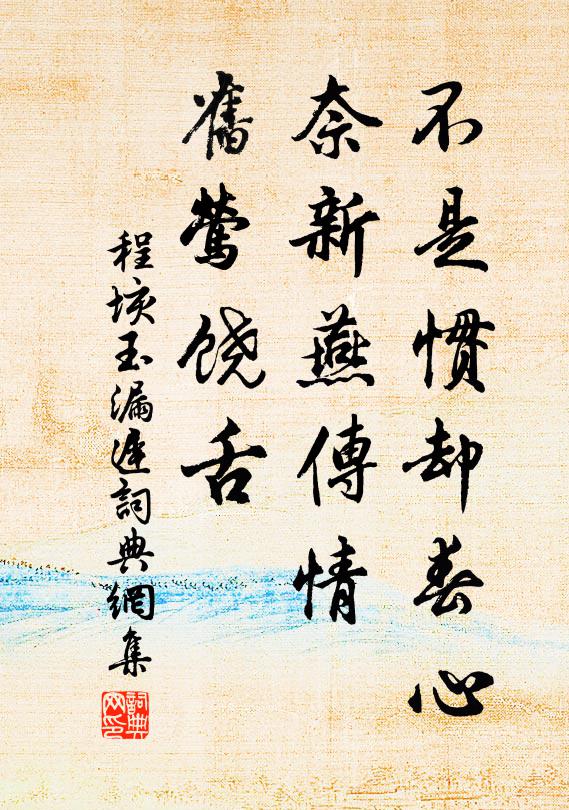 不是慣却春心
奈新燕傳情
舊鶯饒舌
程垓玉漏遲詞典網集
詞典网印